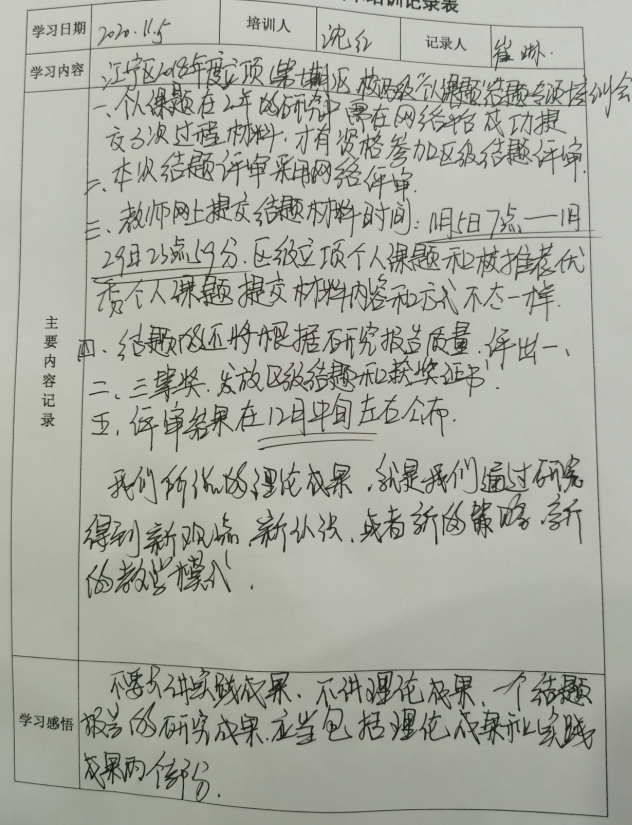 培训记录表
学习日期 2020.11.5 培训人 沈红 记录人 崔
学习内容 江宁区2018年度立项(第十期)区、校级“个人课题”结题专项培训会
主要内容记录
一、个人课题在2年的研究中需在网络平台成功提
交3次过程材料,才有资格参加区级结题评审.
二、本次结题评审采用网络评审.
三、教师网上提交结题材料时间:11月5日7点——11月
29日23点59分.区级立项个人课题和校推荐优
秀个人课题提交材料内容和方式不太一样.
四、结题的还将根据研究报告质量,评出一、
二、三等奖.发放区级结题和获奖证书.
五、评审结果在12月中旬左右公布.
我们所做的理论成果,就是我们通过研究
得到新观点、新认识,或者新的策略、新
的教学模式.
学习感悟
不要只讲实践成果,不讲理论成果,一个结题
报告的研究成果.应当包括理论成果和实践
成果两个部分.